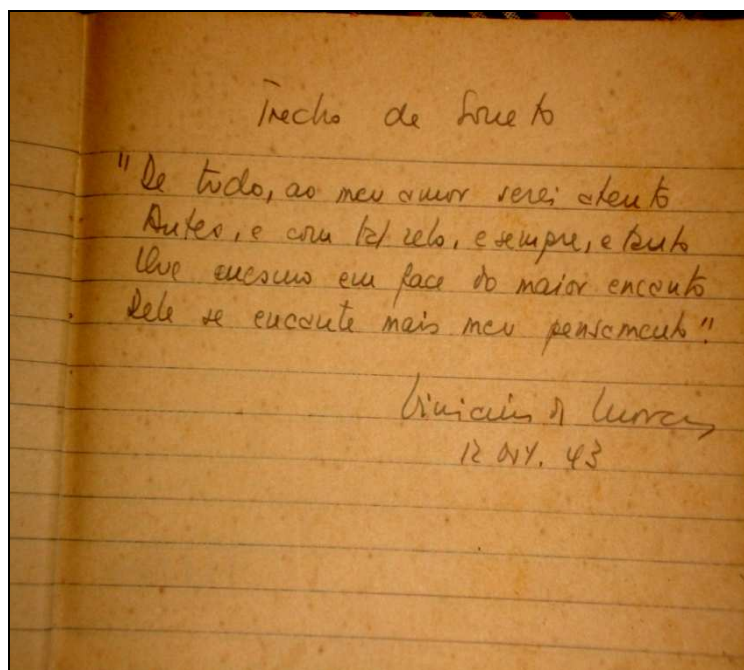 Trecho de Soneto
"De tudo, ao meu amor serei atento
Antes, e com tal zelo, e sempre, e tanto
Que mesmo em face do maior encanto
Dele se encante mais meu pensamento".
Vinicius de Moraes
12 43